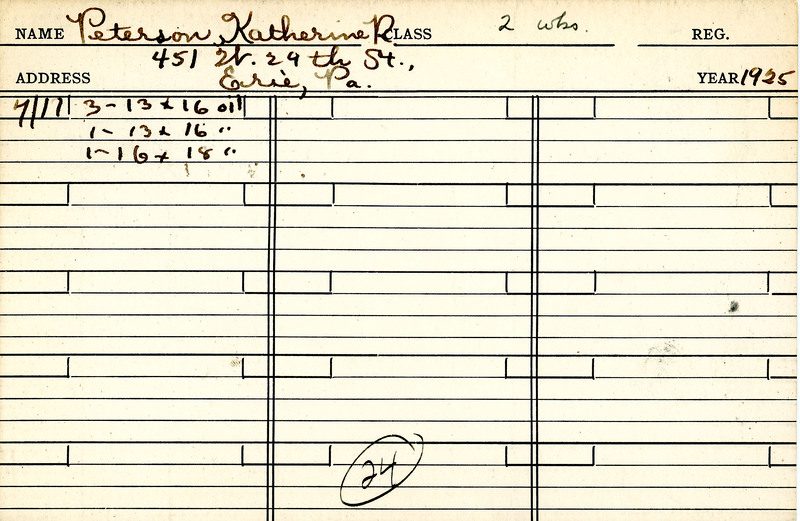 NAME Peterson, Katherine R. CLASS 2 wks. REG.
451 W. 29th St.,
ADDRESS Erie, Pa. YEAR 1925
7/17 3-13 x 16 oil
1- 13 x 16 "
1-16 x 18 "
24